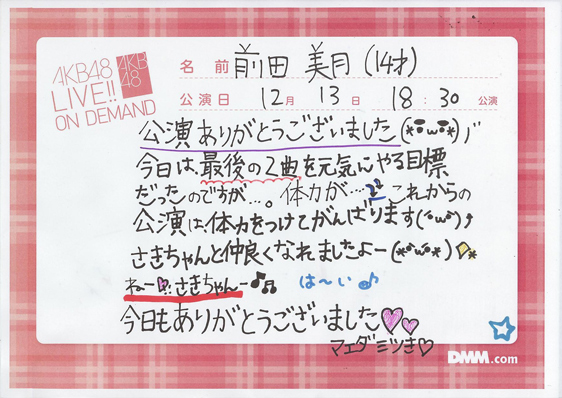 AKB48
LIVE!!
ON DEMAND
AKB
48
名前 前田 美月 (14才)
公演日 12月 13日 18:30 公演
公演ありがとうございました(*•ω•*)ﾉ"
今日は、最後の2曲を元気にやる目標
だったのですが…。体力が… これからの
公演は、体力をつけてがんばります(•ω•)
さきちゃんと仲良くなれましたよー(*•ω•*)
ねー!!さきちゃんー♪♫ は〜い♪
今日もありがとうございました♡♡
マエダミツき♡
DMM.com